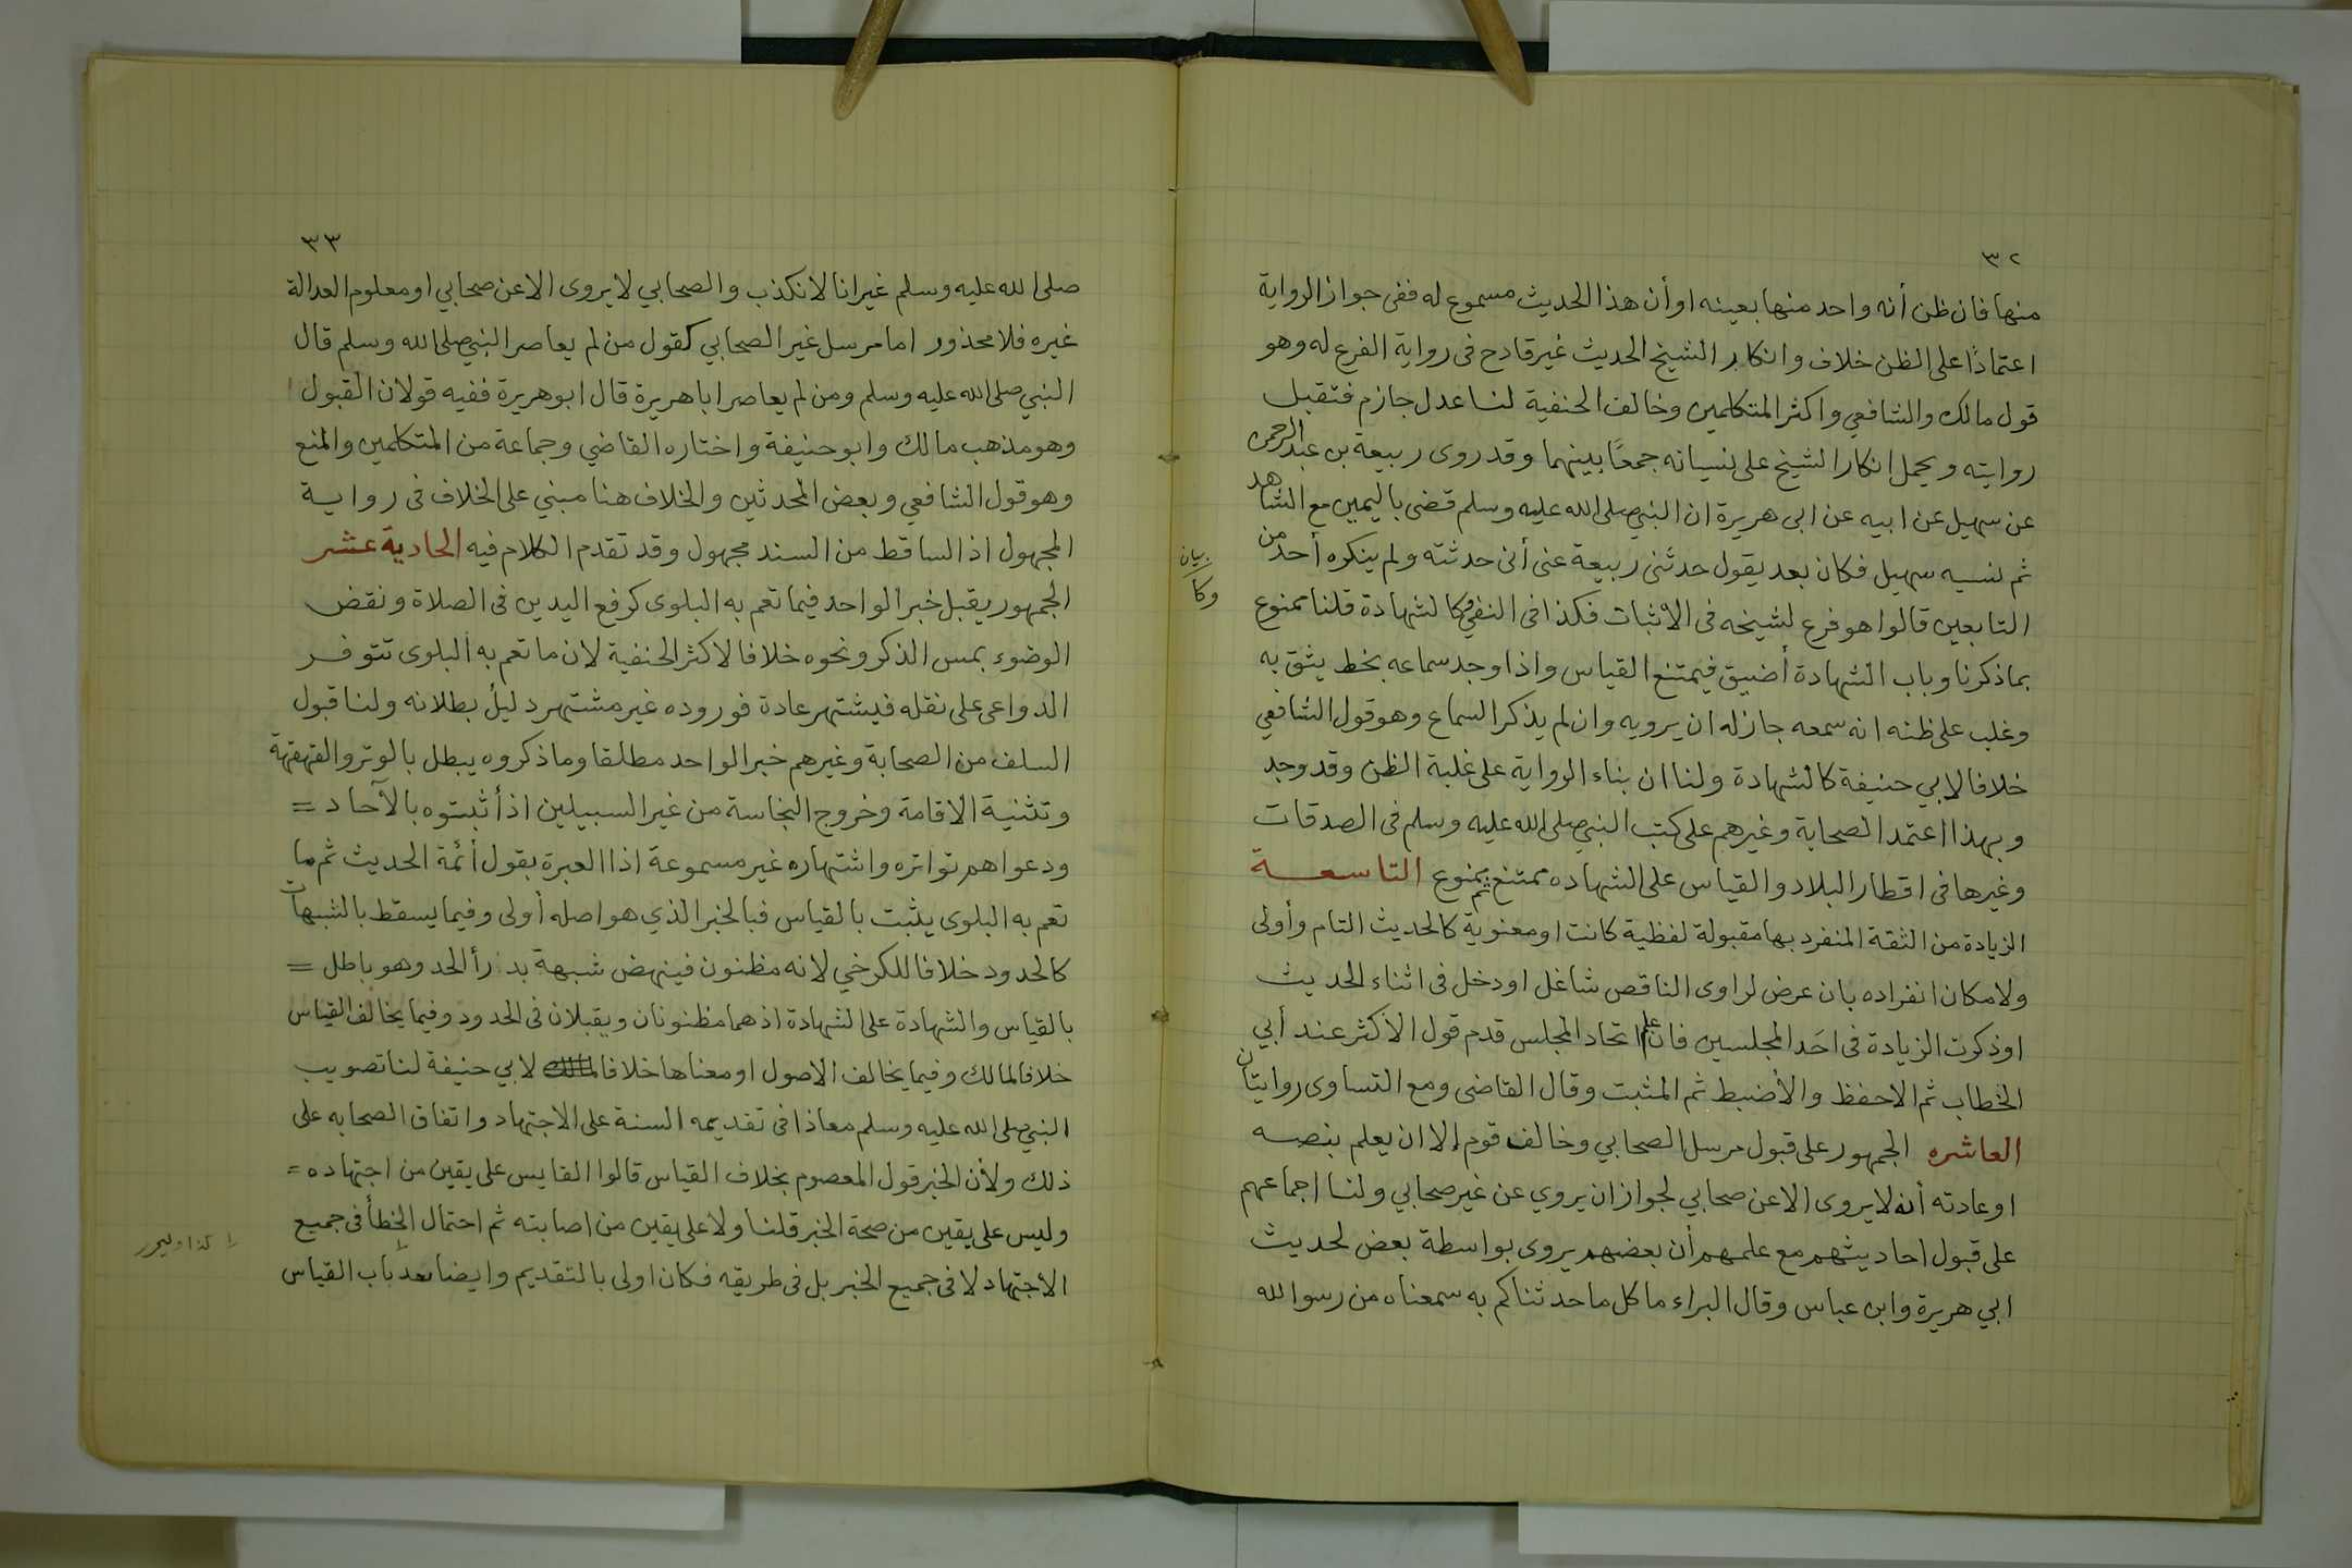 ٣٢
منها فان ظن أنه واحد منها بعينه او أن هذا الحديث مسموع له ففى جواز الرواية
اعتمادًا على الظن خلاف وانكار الشيخ الحديث غير قادح فى رواية الفرع له وهو
قول مالك والشافعي واكثر المتكلمين وخالف الحنفية لنا عدل جازم فتقبل
روايته ويحمل إنكار الشيخ على نسيانه جمعًا بينهما وقد روى ربيعة بن عبد الرحمن
عن سهيل عن ابيه عن ابى هريرة ان النبي صلى الله عليه وسلم قضى باليمين مع الشاهد
ثم نسيه سهيل فكان بعد يقول حدثنى ربيعة عنى أنى حدثته ولم ينكره أحد من
التابعين قالوا هو فرع لشيخه فى الاثبات فكذا فى النفي وكالشهادة قلنا ممنوع
بيان
وكا
بما ذكرنا وباب الشهادة أضيق فيمتنع القياس واذا وجد سماعه بخط يثق به
وغلب على ظنه انه سمعه جاز له ان يرويه وان لم يذكر السماع وهو قول الشافعي
خلافا لابي حنيفة كالشهادة ولنا ان بناء الرواية على غلبة الظن وقد وجد
وبهذا اعتمد الصحابة وغيرهم على كتب النبي صلى الله عليه وسلم فى الصدقات
وغيرها فى اقطار البلاد والقياس على الشهاده ممتنع ثم ممنوع التاسعة
الزيادة من الثقة المنفرد بها مقبولة لفظية كانت او معنوية كالحديث التام وأولى
ولامكان انفراده بان عرض لراوى الناقص شاغل او دخل فى اثناء الحديث
او ذكرت الزيادة فى احَد المجلسين فان علم اتحاد المجلس قدم قول الأكثر عند أبي
الخطاب ثم الاحفظ والأضبط ثم المثبت وقال القاضى ومع التساوى روايتان
العاشره الجمهور على قبول مرسل الصحابي وخالف قوم إلا ان يعلم بنصه
او عادته أنه لا يروى الا عن صحابي لجواز ان يروي عن غير صحابي ولنا اجماعهم
على قبول احاديثهم مع علمهم أن بعضهم يروى بواسطة بعض لحديث
ابي هريرة وابن عباس وقال البراء ما كل ما حدثناكم به سمعناه من رسول الله
٣٣
صلى الله عليه وسلم غير انا لا نكذب والصحابي لا يروى الا عن صحابي او معلوم العدالة
غيره فلا محذور اما مرسل غير الصحابي كقول من لم يعاصر النبي صلى الله وسلم قال
النبي صلى الله عليه وسلم ومن لم يعاصر ابا هريرة قال ابو هريرة ففيه قولان القبول
وهو مذهب مالك وابو حنيفة واختاره القاضي وجماعة من المتكلمين والمنع
وهو قول الشافعي وبعض المحدثين والخلاف هنا مبني على الخلاف فى رواية
المجهول اذ الساقط من السند مجهول وقد تقدم الكلام فيه الحادية عشر
الجمهور يقبل خبر الواحد فيما تعم به البلوى كرفع اليدين فى الصلاة ونقض
الوضوء بمس الذكر ونحوه خلافا لاكثر الحنفية لان ما تعم به البلوى تتوفر
الدواعى على نقله فيشتهر عادة فوروده غير مشتهر دليل بطلانه ولنا قبول
السلف من الصحابة وغيرهم خبر الواحد مطلقا وما ذكروه يبطل بالوتر والقهقهة
وتثنية الاقامة وخروج النجاسة من غير السبيلين اذ أثبتوه بالآحاد =
ودعواهم تواتره واشتهاره غير مسموعة اذا العبرة بقول أئمة الحديث ثم ما
تعم به البلوى يثبت بالقياس فبالخبر الذي هو اصله أولى وفيما يسقط بالشبهات
كالحدود خلافا للكرخي لانه مظنون فينهض شبهة بدرأ الحد وهو باطل =
بالقياس والشهادة على الشهادة اذ هما مظنونان ويقبلان فى الحدود وفيما يخالف القياس
خلافا لمالك وفيما يخالف الاصول او معناها خلافا لابي حنيفة لنا تصويب
النبي صلى الله عليه وسلم معاذا فى تقديمه السنة على الاجتهاد واتفاق الصحابه على
ذلك ولأن الخبر قول المعصوم بخلاف القياس قالوا القايس على يقين من اجتهاده =
وليس على يقين من صحة الخبر قلنا ولا على يقين من اصابته ثم احتمال الخطأ فى جميع
الاجتهاد لا فى جميع الخبر بل فى طريقه فكان اولى بالتقديم وايضا باب القياس